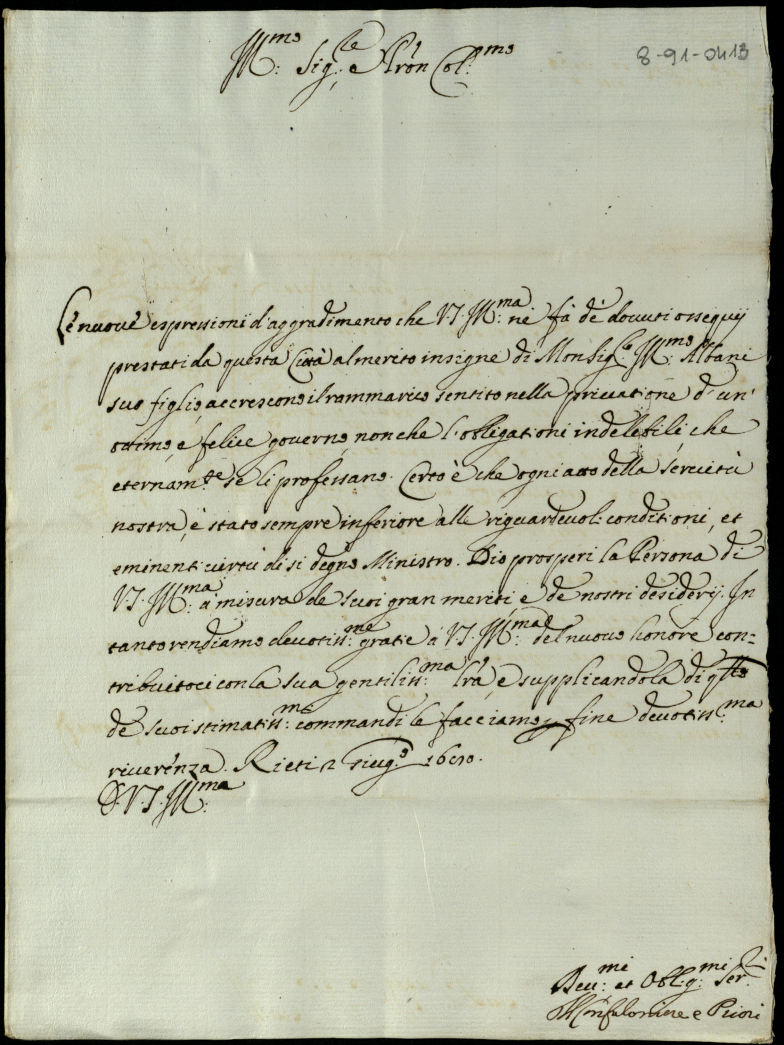 Ill.mo Sig.re e Pron Col.mo
8-91-0413
Le nuove espressioni d'aggradimento che V.S. Ill.ma ne fà de' dovuti ossequij
prestati da questa Città al merito insigne di Monsig.r Ill.mo Albani
suo figlio, accrescono il rammarico sentito nella privatione d'un'
ottimo, e felice governo, non che l'obligationi indelebili, che
eternam.te se li professano. Certo è che ogni atto della servitù
nostra, è stato sempre inferiore alle riguardevoli conditioni, et
eminenti virtù di si degno Ministro. Dio prosperi la Persona di
V.S. Ill.ma à misura de suoi gran meriti e de nostri desiderij. In
tanto rendiamo devotiss.me gratie à V.S. Ill.ma del nuovo honore con=
tribuitoci con la sua gentiliss.ma lrã, e supplicandola di q.llo
de suoi stimatiss.mi commandi le facciamo fine devotiss.ma
riverenza. Rieti 2 giug.o
D. V.S. Ill.ma
Dev.mi et Oblig.mi Ser.ri
Il Confaloniere e Priori